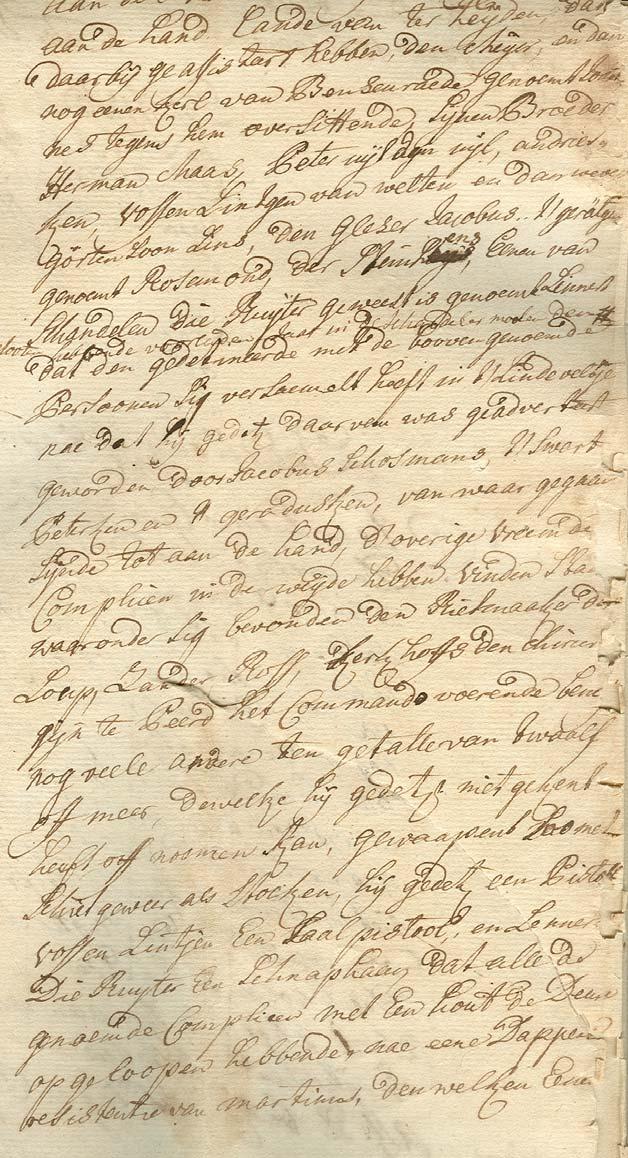 aan de hand Lande van ter heijden, dat
daarbij geassisteert hebben, den cheijer, en dan
nog eenen Kerl van Benseuraede, genoemt
nes tegens hem over sittende, sijnen Broeder
Herman Maas, Peter wijl den wijl, andries
ken, vossen Lintgen van welten en dan
görten Zoon Lins, den Gleser Jacobus
genoemt Rosemond, der Eenen van
die Ruijter geweest is genoemt Lennert
dat den gedetineerde met de bovengenoemde
Persoonen sig versaemelt heeft in 't Lindeveltje
nae dat hij gedetz. daar van was geadverteert
geworden door Jacobus Schosmans, 't Swart
Peterken en 't geradusken, van waar gegaan
sijnde tot aan de hand, d'overige vreemde
Complicen in de weijde hebben vinden
waar onder sig bevonden den
Loup, Zander Rosf, Kerkhoffs den chirur
gijn te Peerd het Commando voerende ben
nog veele andere ten getalle van twaalf
off meer, dewelke hij gedetz. niet gekent
heeft off noemen kan, gewaapent Zoo met
schiet geweer als stocken, hij gedetz. een Pistool
vossen Lintjen Een Zaal pistool, en Lennert
Die Ruijter Een Schnaphaan, dat alle de
genoemde Complicen met Een hout de Deur
opgeloopen hebbende, nae eene Dappere
resistentie van martinus, den welken Eene